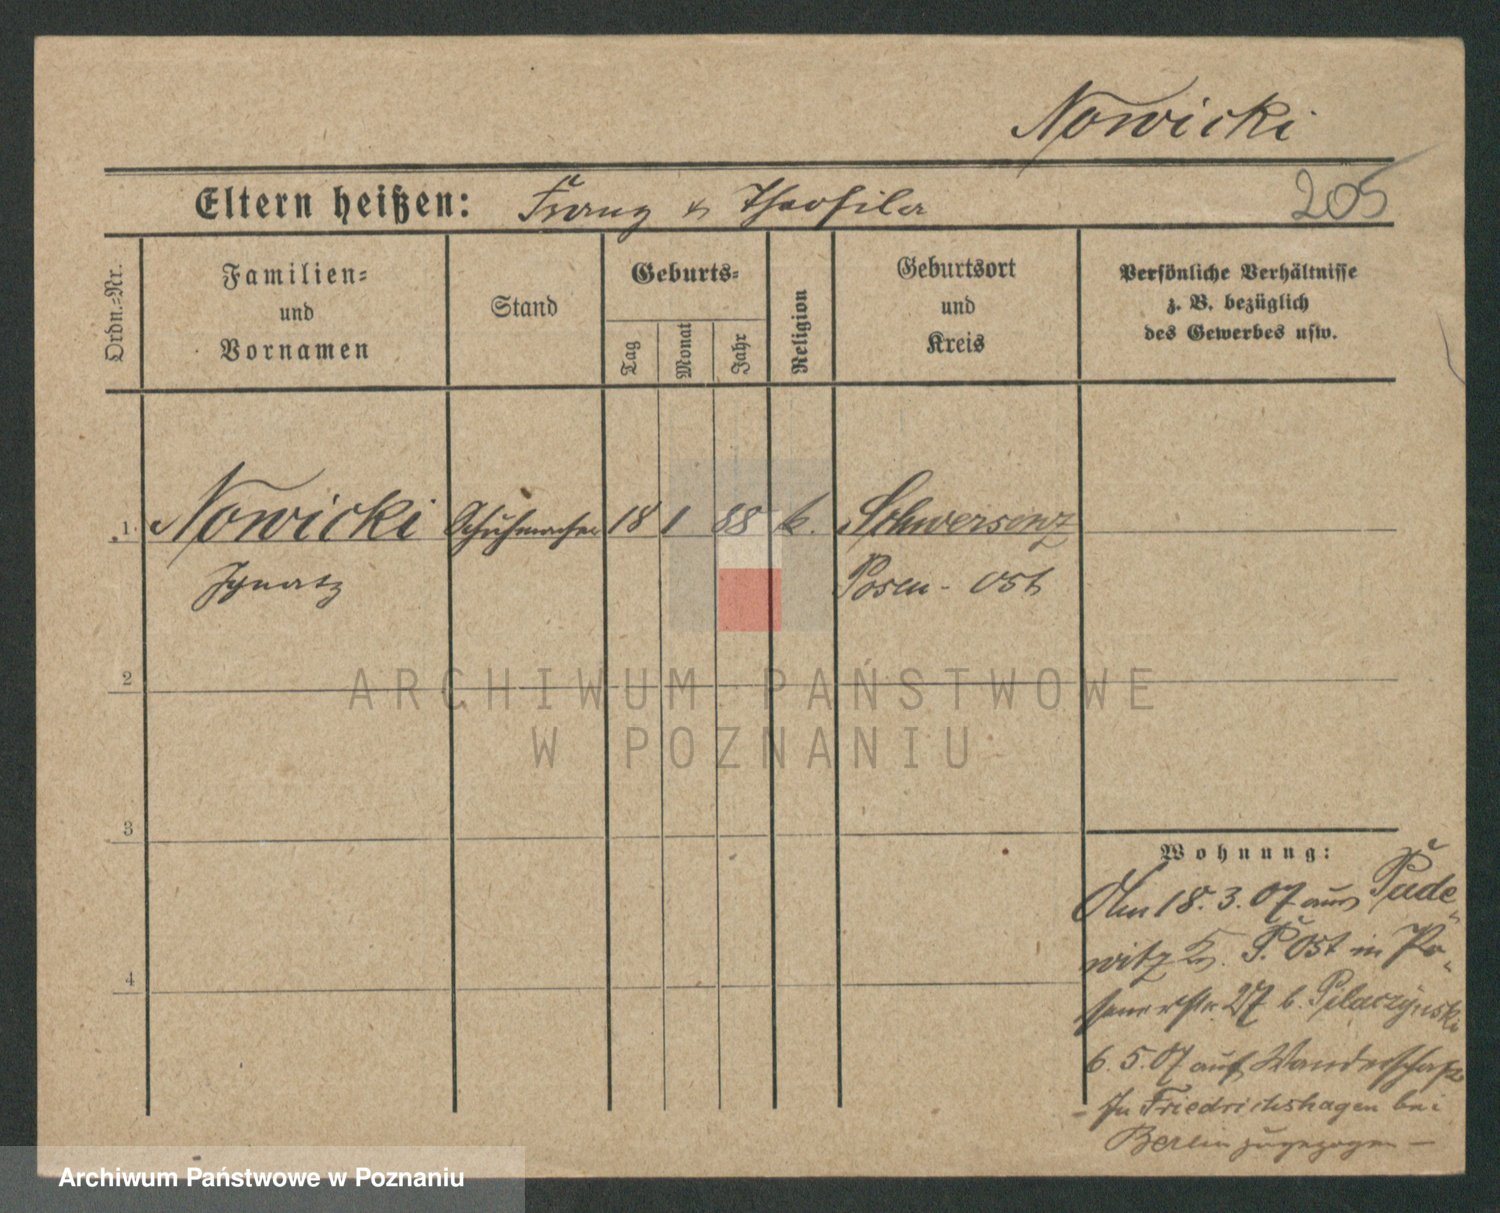 Nowicki
Eltern heißen: Franz u Theofila
205
Ordn.=Nr.
Familien=
und
Vornamen
Stand
Geburts=
Tag
Monat
Jahr
Religion
Geburtsort
und
Kreis
Persönliche Verhältnisse
z. B. bezüglich
des Gewerbes usw.
1. Nowicki Schuhmacher 18 1 88 k. Schwersenz
Ignatz Posen - Ost
2
3
4
Wohnung:
Am 18. 3. 07 aus Pude=
witz Kr. P. Ost in Po=
senerstr. 27 b. Pilaczynski
6. 5. 07 auf Wanderschaft
- In Friedrichshagen bei
Berlin zugezogen -
ARCHIWUM PAŃSTWOWE
W POZNANIU
Archiwum Państwowe w Poznaniu